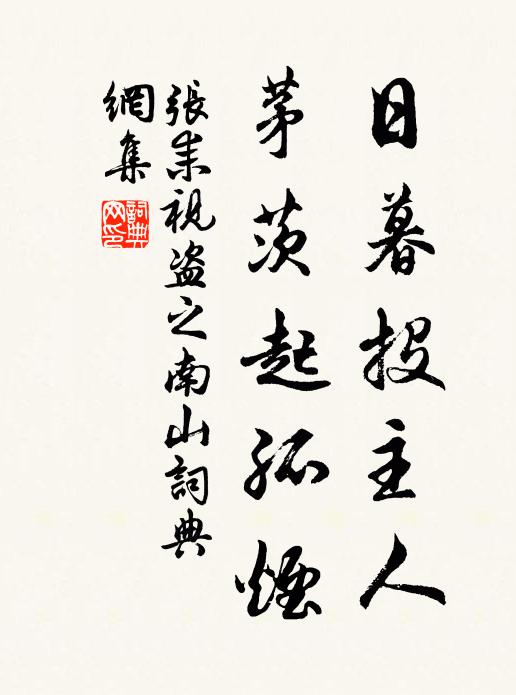 日暮投主人
茅茨起孤煙
張耒視盜之南山詞典
網集
詞典
网印